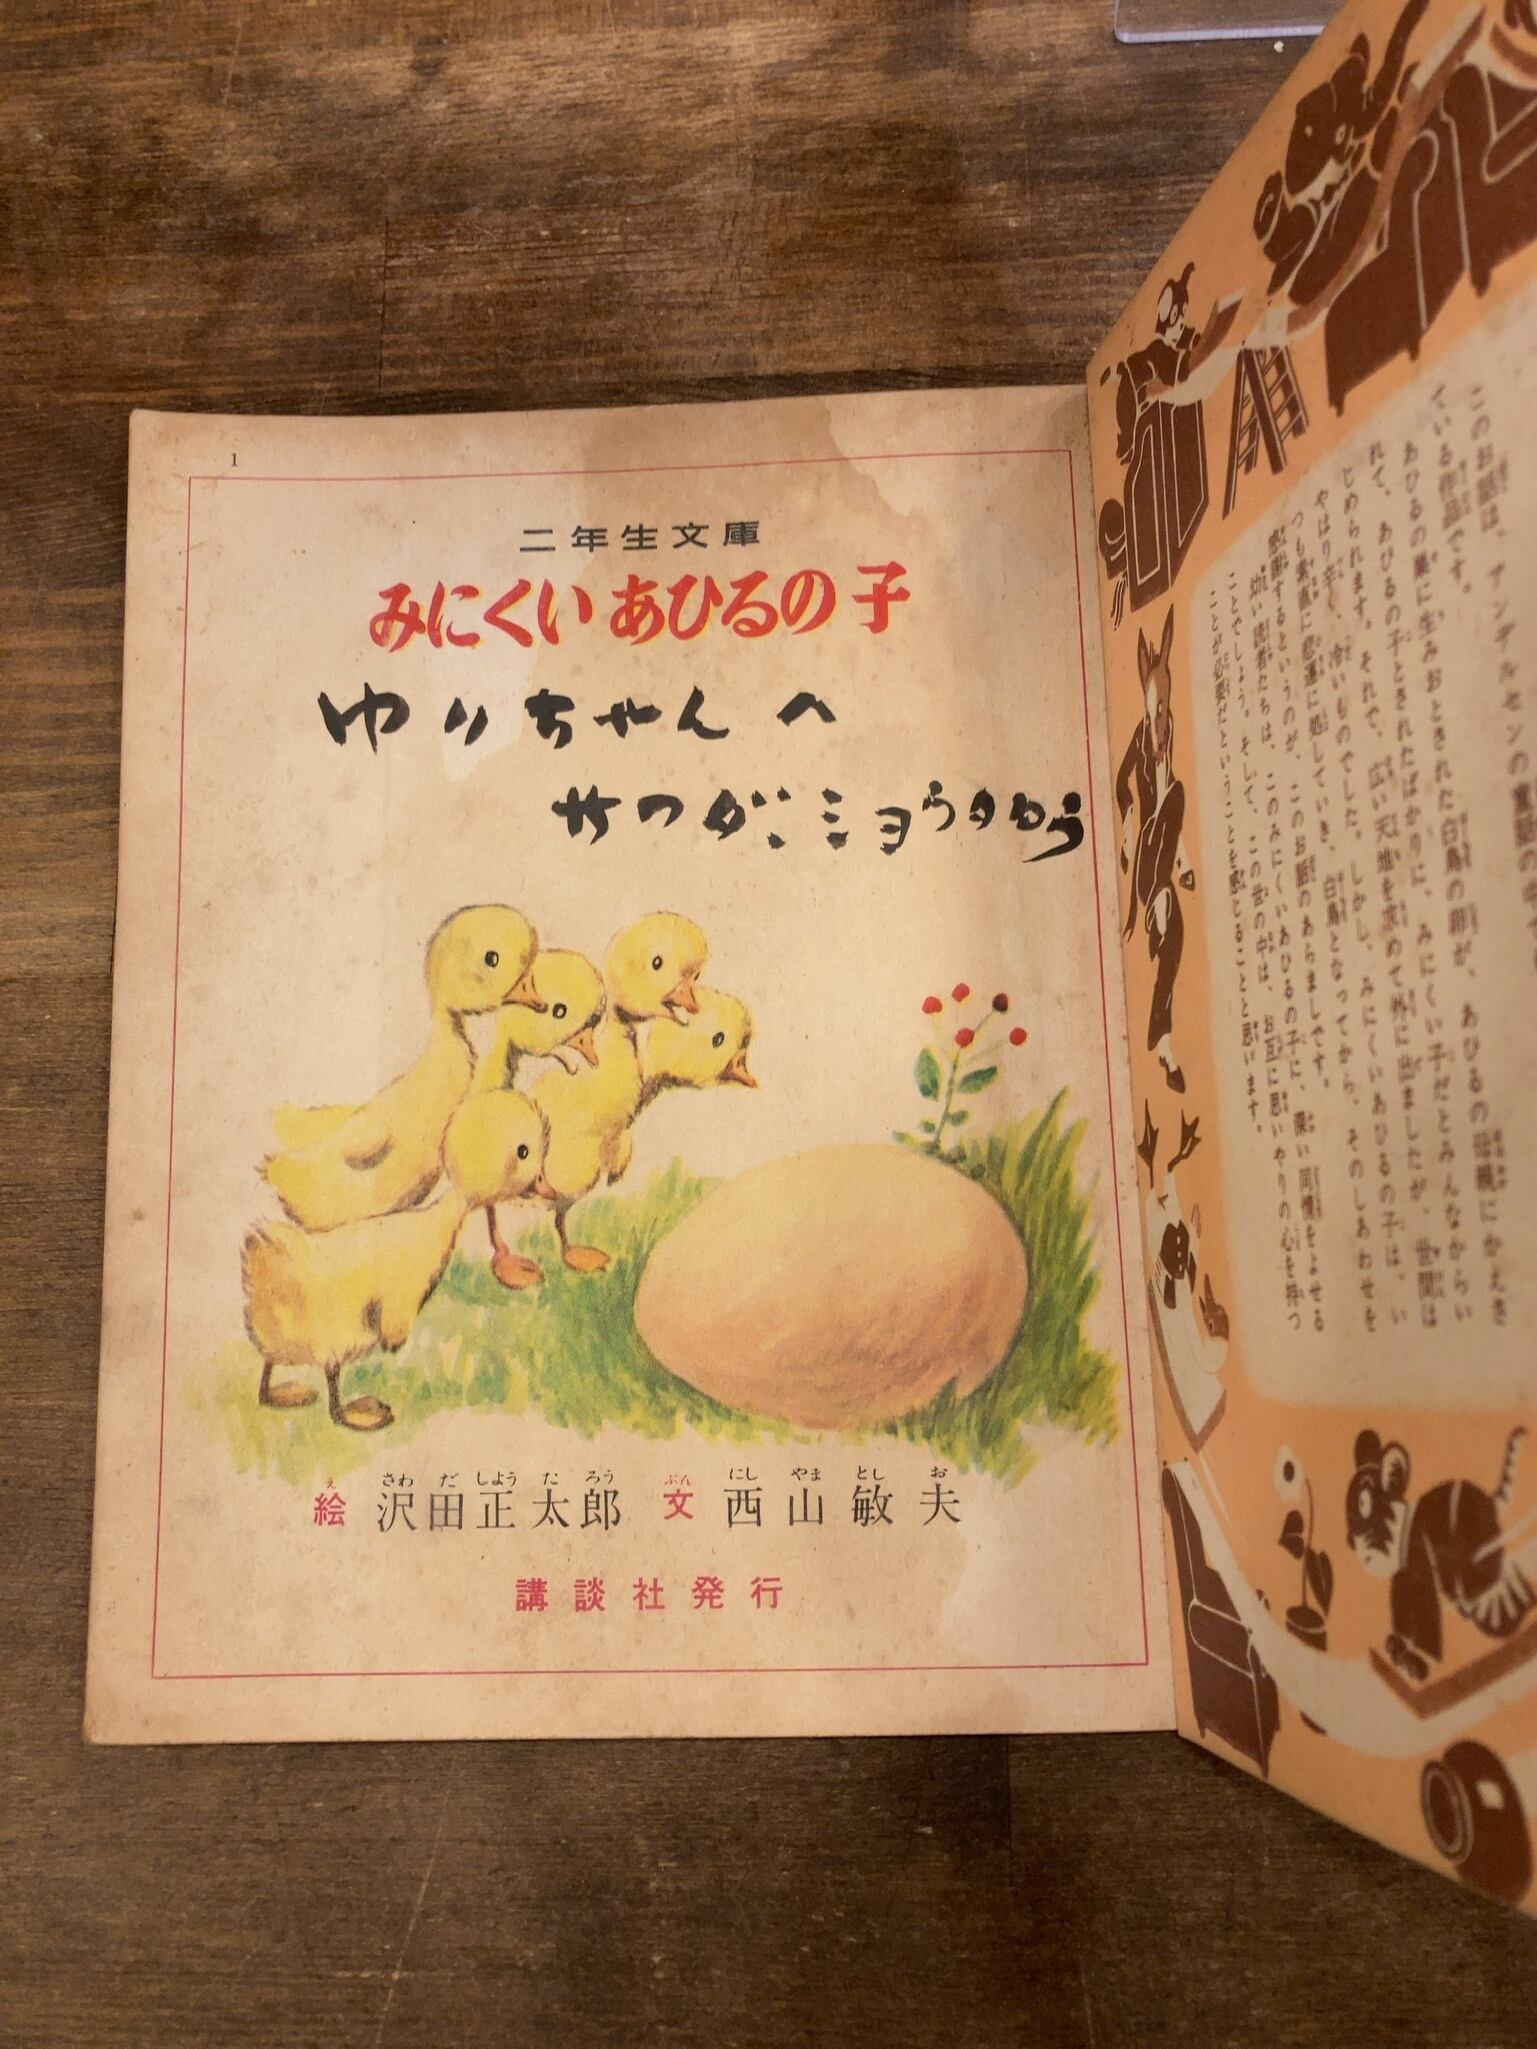 1
二年生文庫
みにくいあひるの子
ゆりちゃんへ
サワダショうタろう
絵 沢田正太郎 文 西山敏夫
講談社発行
このお話は、アンデルセンの童話の中で
ている作品です。
あひるの巣に生みおとされた白鳥の卵が、あひるの母親にかえさ
れて、あひるの子とされたばかりに、みにくい子だとみんなからい
じめられます。それで、広い天地を求めて外に出ましたが、世間は
やはり辛く、冷いものでした。しかし、みにくいあひるの子は、い
つも素直に悲運に処していき、白鳥となってから、そのしあわせを
感謝するというのが、このお話のあらましです。
幼い読者たちは、このみにくいあひるの子に、深い同情をよせる
ことでしょう。そして、この世の中は、お互に思いやりの心を持つ
ことが必要だということを感じることと思います。